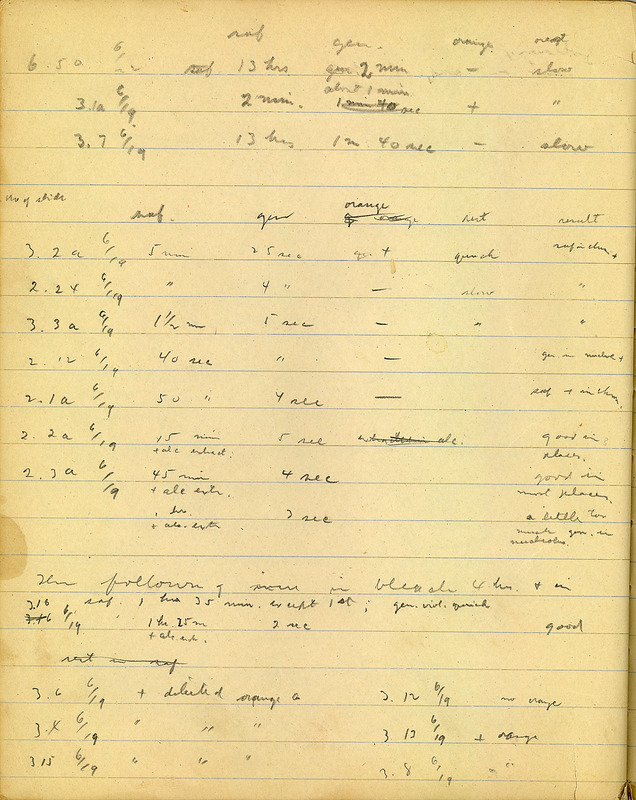 saf gen. orange rest
6.5a 6/12 saf 13 hrs gen 2 min — slow
about 1 min
3.1a 6/19 2 min. 1 min 40 sec + "
3.7 6/19 13 hrs 1m 40 sec — slow
no of slide
orange
saf. gen rest result
3.2a 6/19 5 min 25 sec + quick
2.24 6/19 " 4 " — slow "
3.3a 6/19 1½ min 5 sec — " "
2.12 6/19 40 sec " — gen. in
2.1a 6/19 50 " 4 sec — saf + in
2.2a 6/19 15 min 5 sec alc. good in
+ alc extract. places.
2.3a 6/19 45 min 4 sec good in
+ alc extr. most places.
1 hr. 3 sec a little too
+ alc. extr much gen. in
nucleolus.
The following were in bleach 4 hrs. + in
3.16 saf. 1 hr 35 min. except 1st; gen. viol. quick
6/19 1 hr. 25 m 2 sec good
+ alc. ext.
rest in saf
3.6 6/19 + diluted orange G 3.12 6/19 no orange
3.4 6/19 " " " 3.13 6/19 + orange
3.15 6/19 " " " 3.8 6/19 "